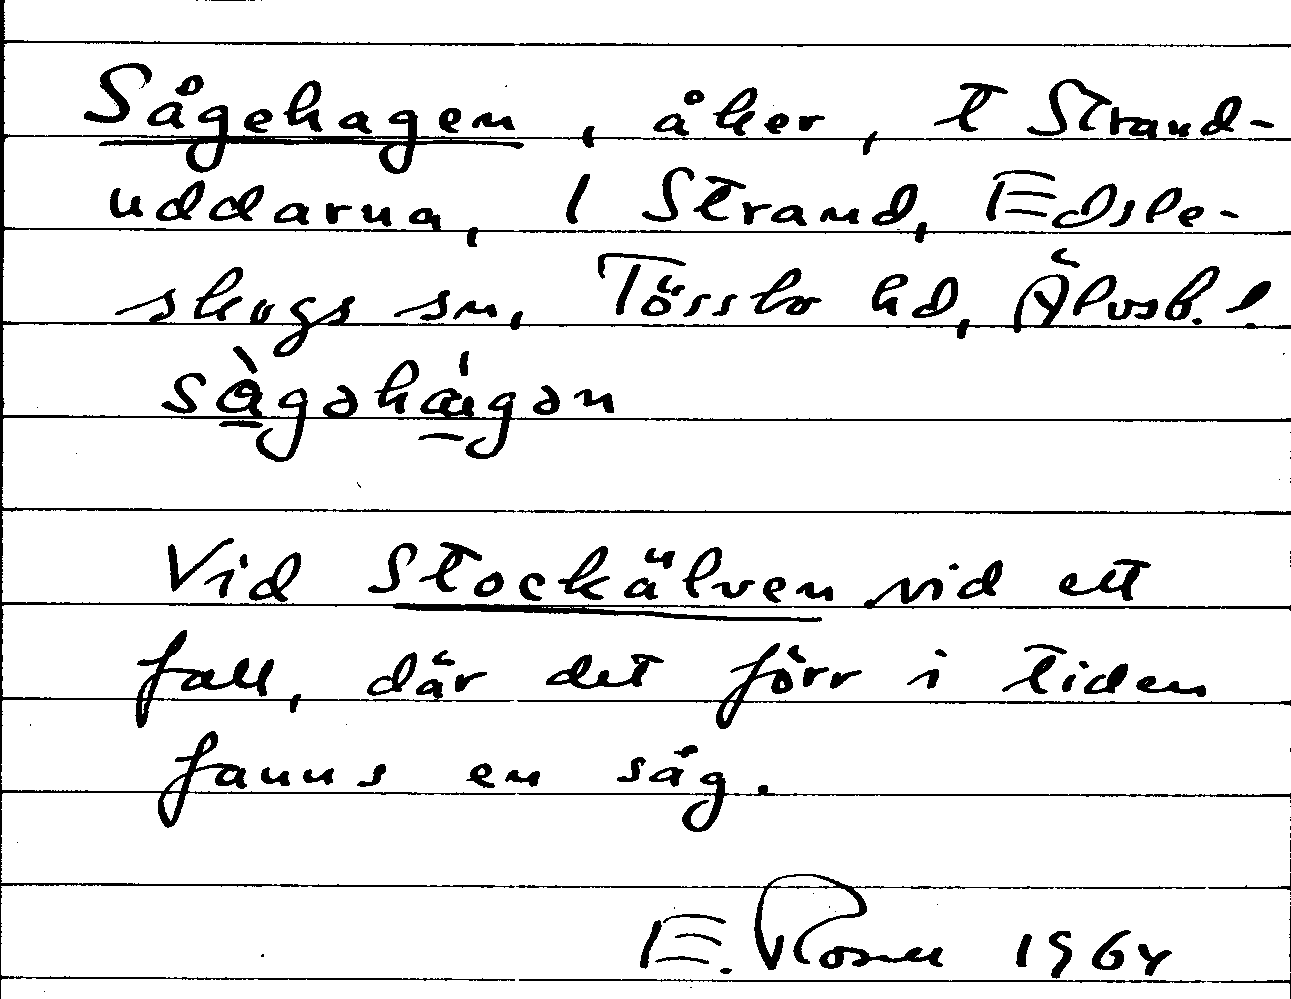 Sågehagen, åker, t Strand-
uddarna, 1 Strand, Edsle-
skogs sn, Tössbo hd, Älvsb. l.
sàgəháigən
Vid Stockälven vid ett
fall, där det förr i tiden
fanns en såg.
E. Rosell 1964